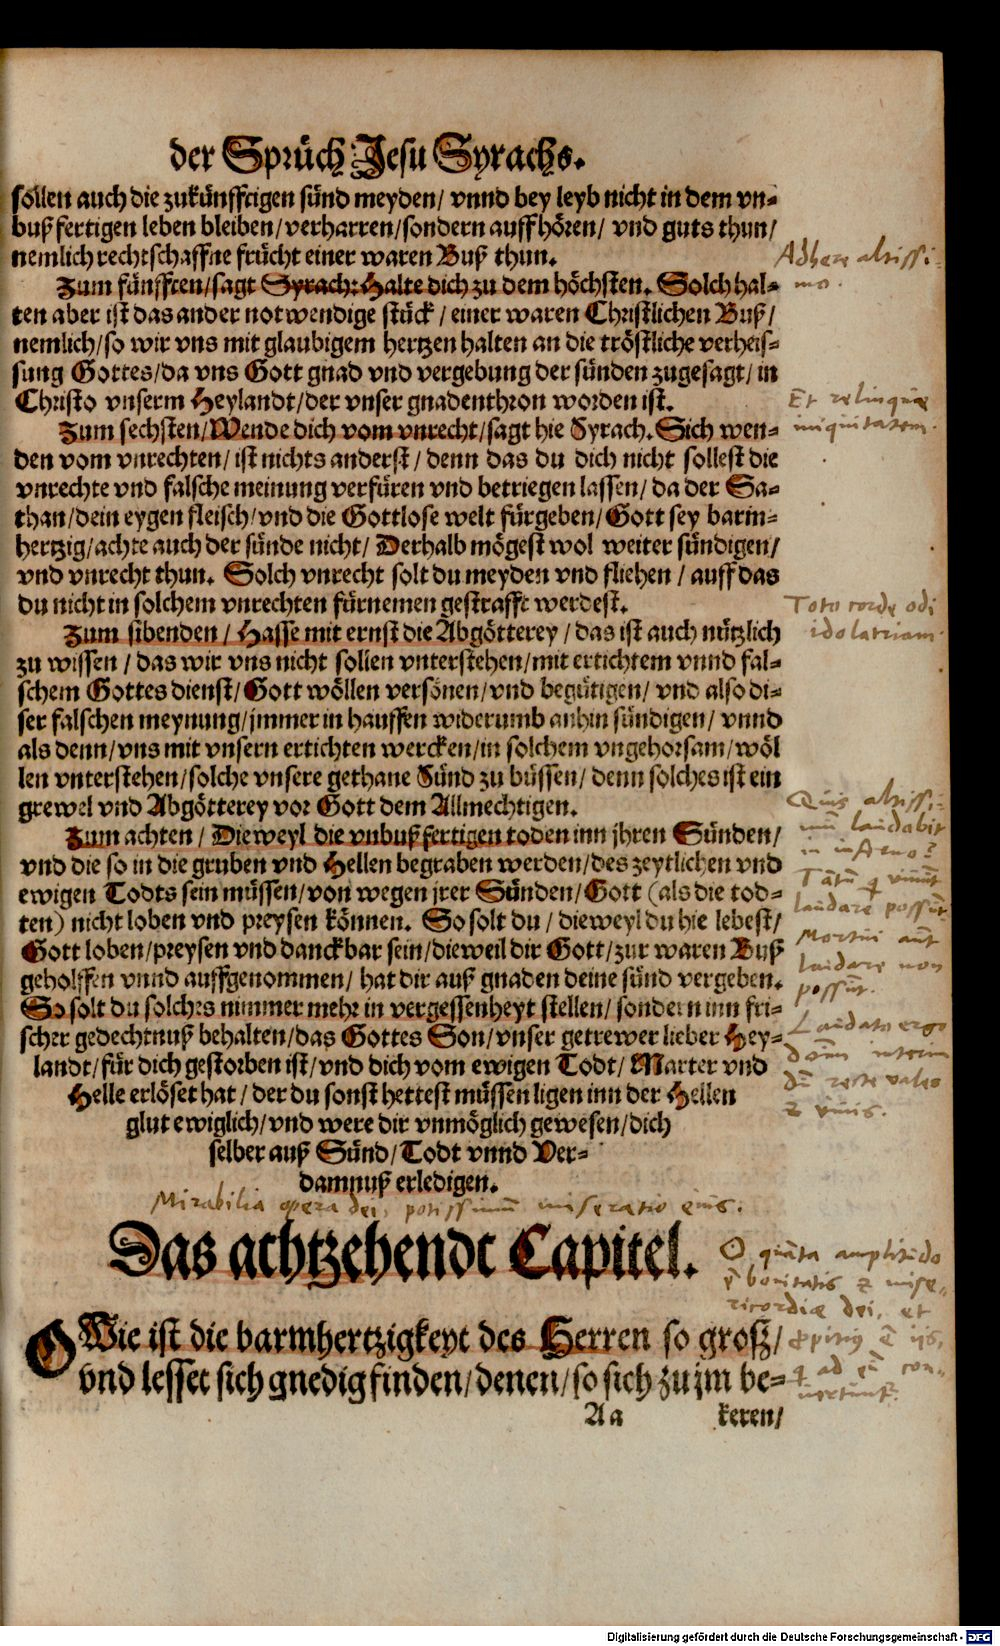 der Sprüch Jesu Syrachs.
sollen auch die zukünfftigen sünd meyden/ vnnd bey leyb nicht in dem vn⸗
bußfertigen leben bleiben/verharren/sondern auffhören/ vnd guts thun/
nemlich rechtschaffne frücht einer waren Buß thun.
Adhere altissi-
mo.
Zum fünfften/sagt Syrach: Halte dich zu dem höchsten. Solch hal⸗
ten aber ist das ander notwendige stück/ einer waren Christlichen Buß/
nemlich/so wir vns mit glaubigem hertzen halten an die tröstliche verheis⸗
sung Gottes/da vns Gott gnad vnd vergebung der sünden zugesagt/ in
Christo vnserm Heylandt/der vnser gnadenthron worden ist.
Et relinque
iniquitatem.
Zum sechsten/Wende dich vom vnrecht/sagt hie Syrach. Sich wen⸗
den vom vnrechten/ ist nichts anderst/ denn das du dich nicht sollest die
vnrechte vnd falsche meinung verfüren vnd betriegen lassen/ da der Sa⸗
than/dein eygen fleisch/vnd die Gottlose welt fürgeben/ Gott sey barm⸗
hertzig/achte auch der sünde nicht/ Derhalb mögest wol weiter sündigen/
vnd vnrecht thun. Solch vnrecht solt du meyden vnd fliehen/ auff das
du nicht in solchem vnrechten fürnemen gestrafft werdest.
Toto corde odi
idolatriam.
Zum sibenden/ Hasse mit ernst die Abgötterey/ das ist auch nützlich
zu wissen/ das wir vns nicht sollen vnterstehen/mit ertichtem vnnd fal⸗
schem Gottes dienst/ Gott wöllen versönen/vnd begütigen/ vnd also di⸗
ser falschen meynung/jmmer in hauffen widerumb anhin sündigen/ vnnd
als denn/vns mit vnsern ertichten wercken/in solchem vngehorsam/wöl
len vnterstehen/solche vnsere gethane Sünd zu büssen/ denn solches ist ein
grewel vnd Abgötterey vor Gott dem Allmechtigen.
Quis altissi-
mū laudabit
in inferno?
Tātū q viuūt
laudare possūt.
Mortui aūt
laudare non
possūt.
Laudato ergo
Zum achten/ Dieweyl die vnbußfertigen toden inn jhren Sünden/
vnd die so in die gruben vnd Hellen begraben werden/des zeytlichen vnd
ewigen Todts sein müssen/von wegen jrer Sünden/Gott (als die tod⸗
ten) nicht loben vnd preysen können. So solt du/ dieweyl du hie lebest/
Gott loben/preysen vnd danckbar sein/dieweil dir Gott/zur waren Buß
geholffen vnnd auffgenommen/ hat dir auß gnaden deine sünd vergeben.
So solt du solches nimmer mehr in vergessenheyt stellen/ sondern inn fri⸗
scher gedechtnuß behalten/das Gottes Son/vnser getrewer lieber Hey⸗
landt/für dich gestorben ist/vnd dich vom ewigen Todt/ Marter vnd
Helle erlöset hat/ der du sonst hettest müssen ligen inn der Hellen
glut ewiglich/vnd were dir vnmöglich gewesen/dich
selber auß Sünd/Todt vnnd Ver⸗
damnuß erledigen.
Mirabilia opera dei, potissimū miseratio eius.
Das achtzehendt Capitel.
O quāta amplitudo
ē bonitatis & mise-
ricordiæ dei, et
OWie ist die barmhertzigkeyt des Herren so groß/
vnd lesset sich gnedig finden/denen/so sich zu jm be⸗
Aa keren/
Digitalisierung gefördert durch die Deutsche Forschungsgemeinschaft - DFG